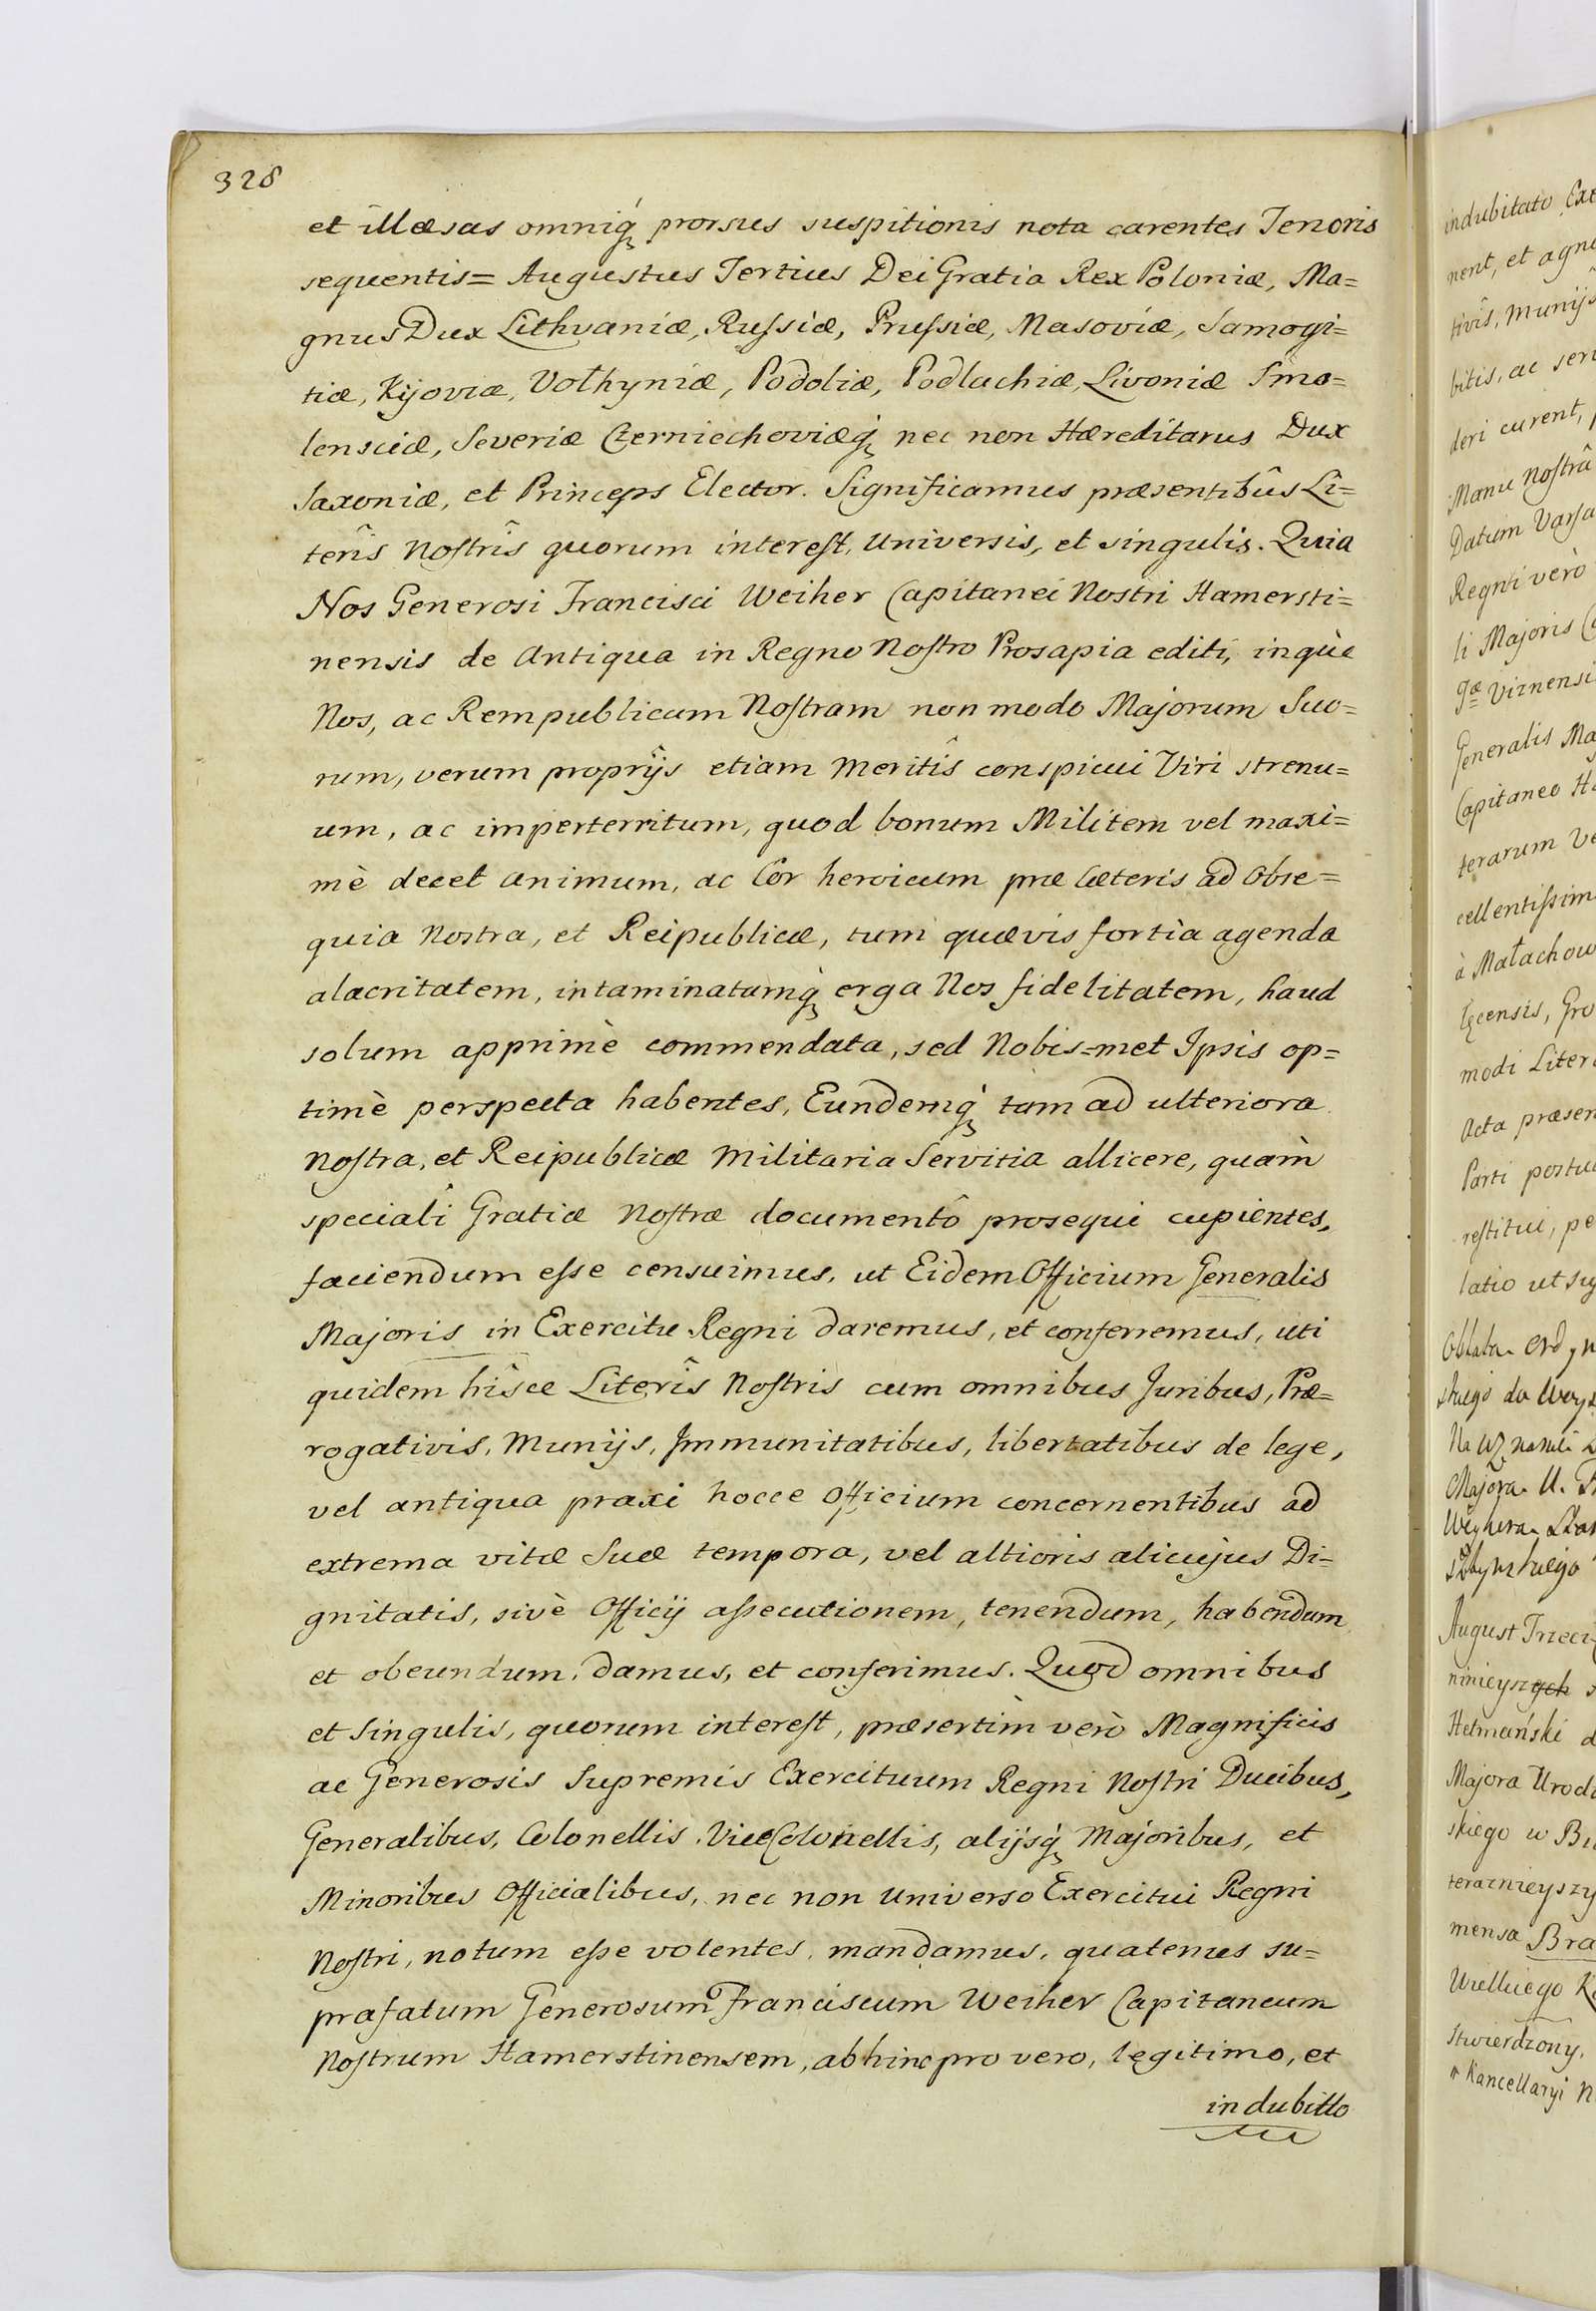 328
et illæsas omniq́ prorsus suspitionis nota carentes Tenoris
sequentis= Augustus Tertius Dei Gratia Rex Poloniæ, Ma=
gnus Dux Lithvaniæ, Russiæ, Prussiæ, Masoviæ, Samogi=
tiæ, Kijoviæ, Vołhyniæ, Podoliæ, Podlachiæ, Livoniæ Smo=
lensciæ, Severiæ Czerniechoviæq́ nec non Hæreditarus Dux
Saxoniæ, et Princeps Elector. Significamus præsentibûs Li=
terîs Nostrîs quorum interest, Universis, et singulis. Quia
Nos Generosi Francisci Weiher Capitanei Nostri Hamersti=
nensis de Antiqua in Regno Nostro Prosapia editi, inquè
Nos, ac Rempublicam Nostram non modo Majorum Suo=
rum, verum proprijs etiam Meritîs conspicui Viri strenu=
um, ac imperterritum, quod bonum Militem vel maxi=
mè decet Animum, ac Cor heroicum præ Cæteris ad Obse=
quia Nostra, et Reipublicæ, tum quævis fortia agenda
alacritatem, intaminatamq́ erga Nos fidelitatem, haud
solum apprimè commendata, sed Nobis=met Ipsis op=
timè perspecta habentes, Eundemq́ tam ad ulteriora
Nostra, et Reipublicæ Militaria Servitia allicere, quàm
speciali Gratiæ Nostræ documentô prosequi cupientes,
faciendum esse censuimus, ut Eidem Officium Generalis
Majoris in Exercitu Regni daremus, et conferremus, uti
quidem hîsce Literîs Nostris cum omnibus Juribus, Præ=
rogativis, Munijs, Immunitatibus, libertatibus de lege,
vel antiqua praxi hocce Officium concernentibus ad
extrema vitæ Suæ tempora, vel altioris alicujus Di=
gnitatis, sivè Officij assecutionem, tenendum, habendum
et obeundum, damus, et conferimus. Quod omnibus
et Singulis, quorum interest, præsertìm verò Magnificis
ac Generosis Supremis Exercituum Regni Nostri Ducibus,
Generalibus, Colonellis, ViceColonellis, alijsq́ Majoribus, et
Minoribus Officialibus, nec non Universo Exercitui Regni
Nostri, notum esse volentes, mandamus, quatenus su=
prafatum Generosum Franciscum Weiher Capitaneum
Nostrum Hamerstinensem, abhinc pro vero, legitimo, et
indubitto
indubitato
nent, et
tivîs, Munijs
bitis, ac
deri curent,
Manu Nostrâ
Datum
Regni verò
li Majoris
Generalis
Capitaneo
terarum
à
modi
Acta
Parti
restitui,
latio ut
Oblata
Na
August
Hetmański
Majora
skiego w
mensa
stwierdzony,
Kancellaryi